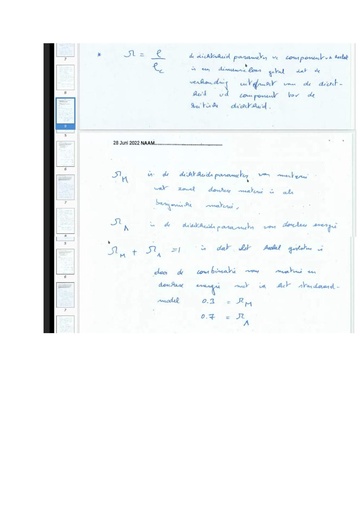 * Ω = ρ / ρc de dichtheid parameter vd component
is een dimensieloos getal dat de
verhouding van de dicht-
heid vd component tov de
kritische dichtheid.
28 Juni 2022 NAAM
Ω M is de dichtheidsparameter van materie
wat zowel donkere materie is als
baryonische materie.
Ω Λ is de dichtheidsparameter van donkere energie
Ω M + Ω Λ = 1 is dat dit
door de combinatie van materie en
donkere energie met in het standaard-
model 0.3 = Ω M
0.7 = Ω Λ